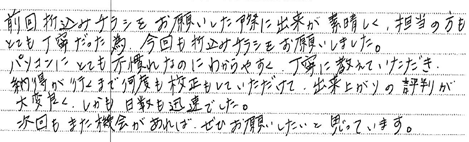 前回折込みチラシをお願いした際に出来が素晴しく、担当の方も
とても丁寧だった為、今回も折込みチラシをお願いしました。
パソコンにとても不慣れなのにわかりやすく、丁寧に教えていただき、
納得が行くまで何度も校正もしていただけて、出来上がりの評判が
大変良く、しかも日数も迅速でした。
次回もまた機会があれば、ぜひお願いしたいと思っています。